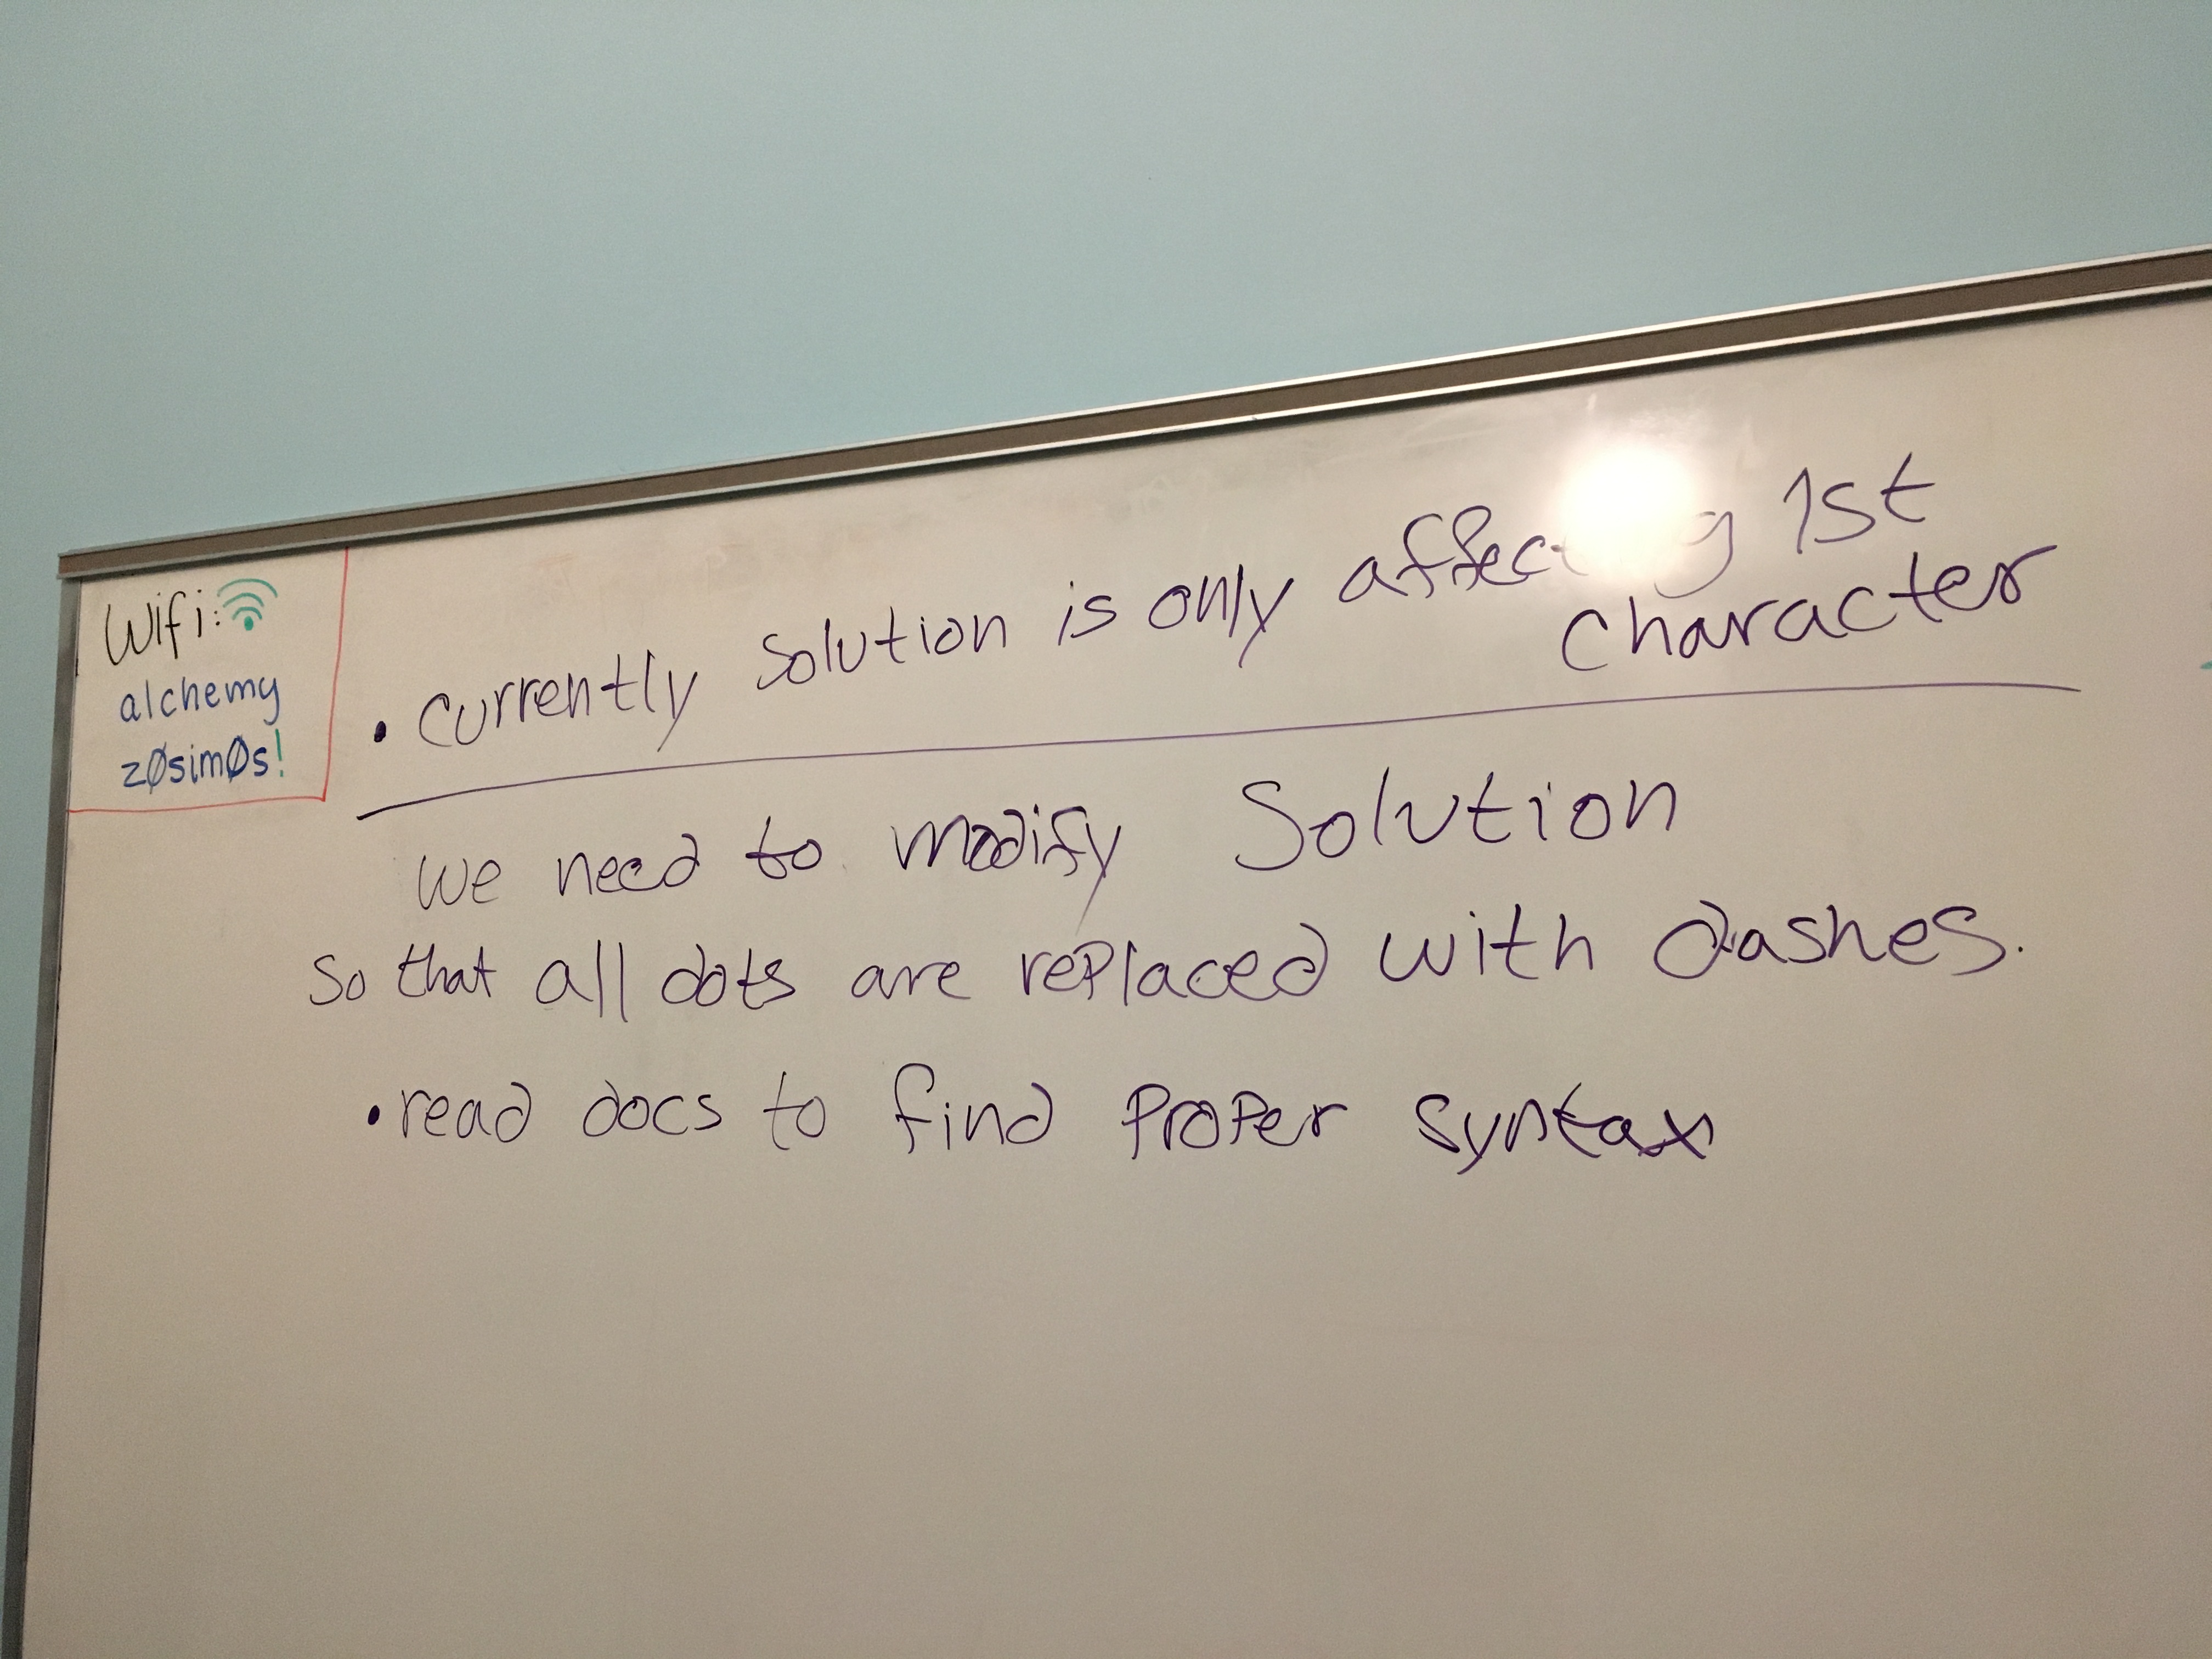 Wifi:
alchemy
zØsimØs!
• currently solution is only affecting 1st
character
we need to modify Solution
So that all dots are replaced with dashes.
• read docs to find proper syntax